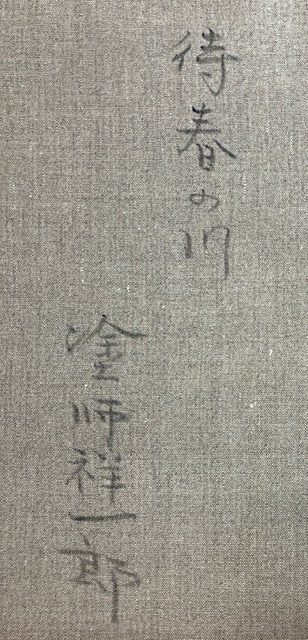 待春の川
塗師祥一郎